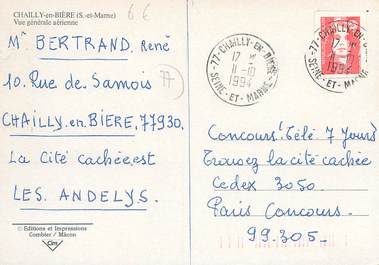 CHAILLY-en-BIÈRE (S.-et-Marne)
Vue générale aérienne
6 €
Mr BERTRAND. René
10. Rue de. Samois
77
CHAiLLY.en.BIÈRE.77930.
La Cité cachée.est
LES. ANDELYS.
© Editions et Impressions
Combier / Mâcon
Cim
77-CHAILLY-EN-BIERE
17 H
11-10
1994
SEINE-ET-MARNE
77-CHAILLY-EN-BIERE
11-10
1994
SEINE-ET-MARNE
Concours! Télé 7 Jours!
Trouvez la cité cachée
Cedex 3050.
Paris Concours.
99.305.